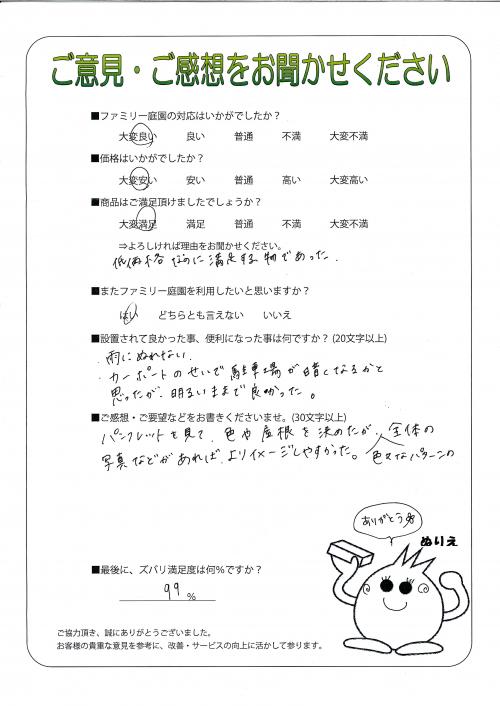 ご意見・ご感想をお聞かせください
■ファミリー庭園の対応はいかがでしたか？
大変良い 良い 普通 不満 大変不満
■価格はいかがでしたか？
大変安い 安い 普通 高い 大変高い
■商品はご満足頂けましたでしょうか？
大変満足 満足 普通 不満 大変不満
⇒よろしければ理由をお聞かせください。
低価格なのに満足する物であった。
■またファミリー庭園を利用したいと思いますか？
はい どちらとも言えない いいえ
■設置されて良かった事、便利になった事は何ですか？(20文字以上)
・雨にぬれない。
・カーポートのせいで駐車場が暗くなるかと
思ったが、明るいままで良かった。
■ご感想・ご要望などをお書きくださいませ。(30文字以上)
パンフレットを見て、色や屋根を決めたが、全体の
写真などがあれば、よりイメージしやすかった。色々なパターンの
ありがとう
ぬりえ
■最後に、ズバリ満足度は何％ですか？
99 %
ご協力頂き、誠にありがとうございました。
お客様の貴重な意見を参考に、改善・サービスの向上に活かして参ります。